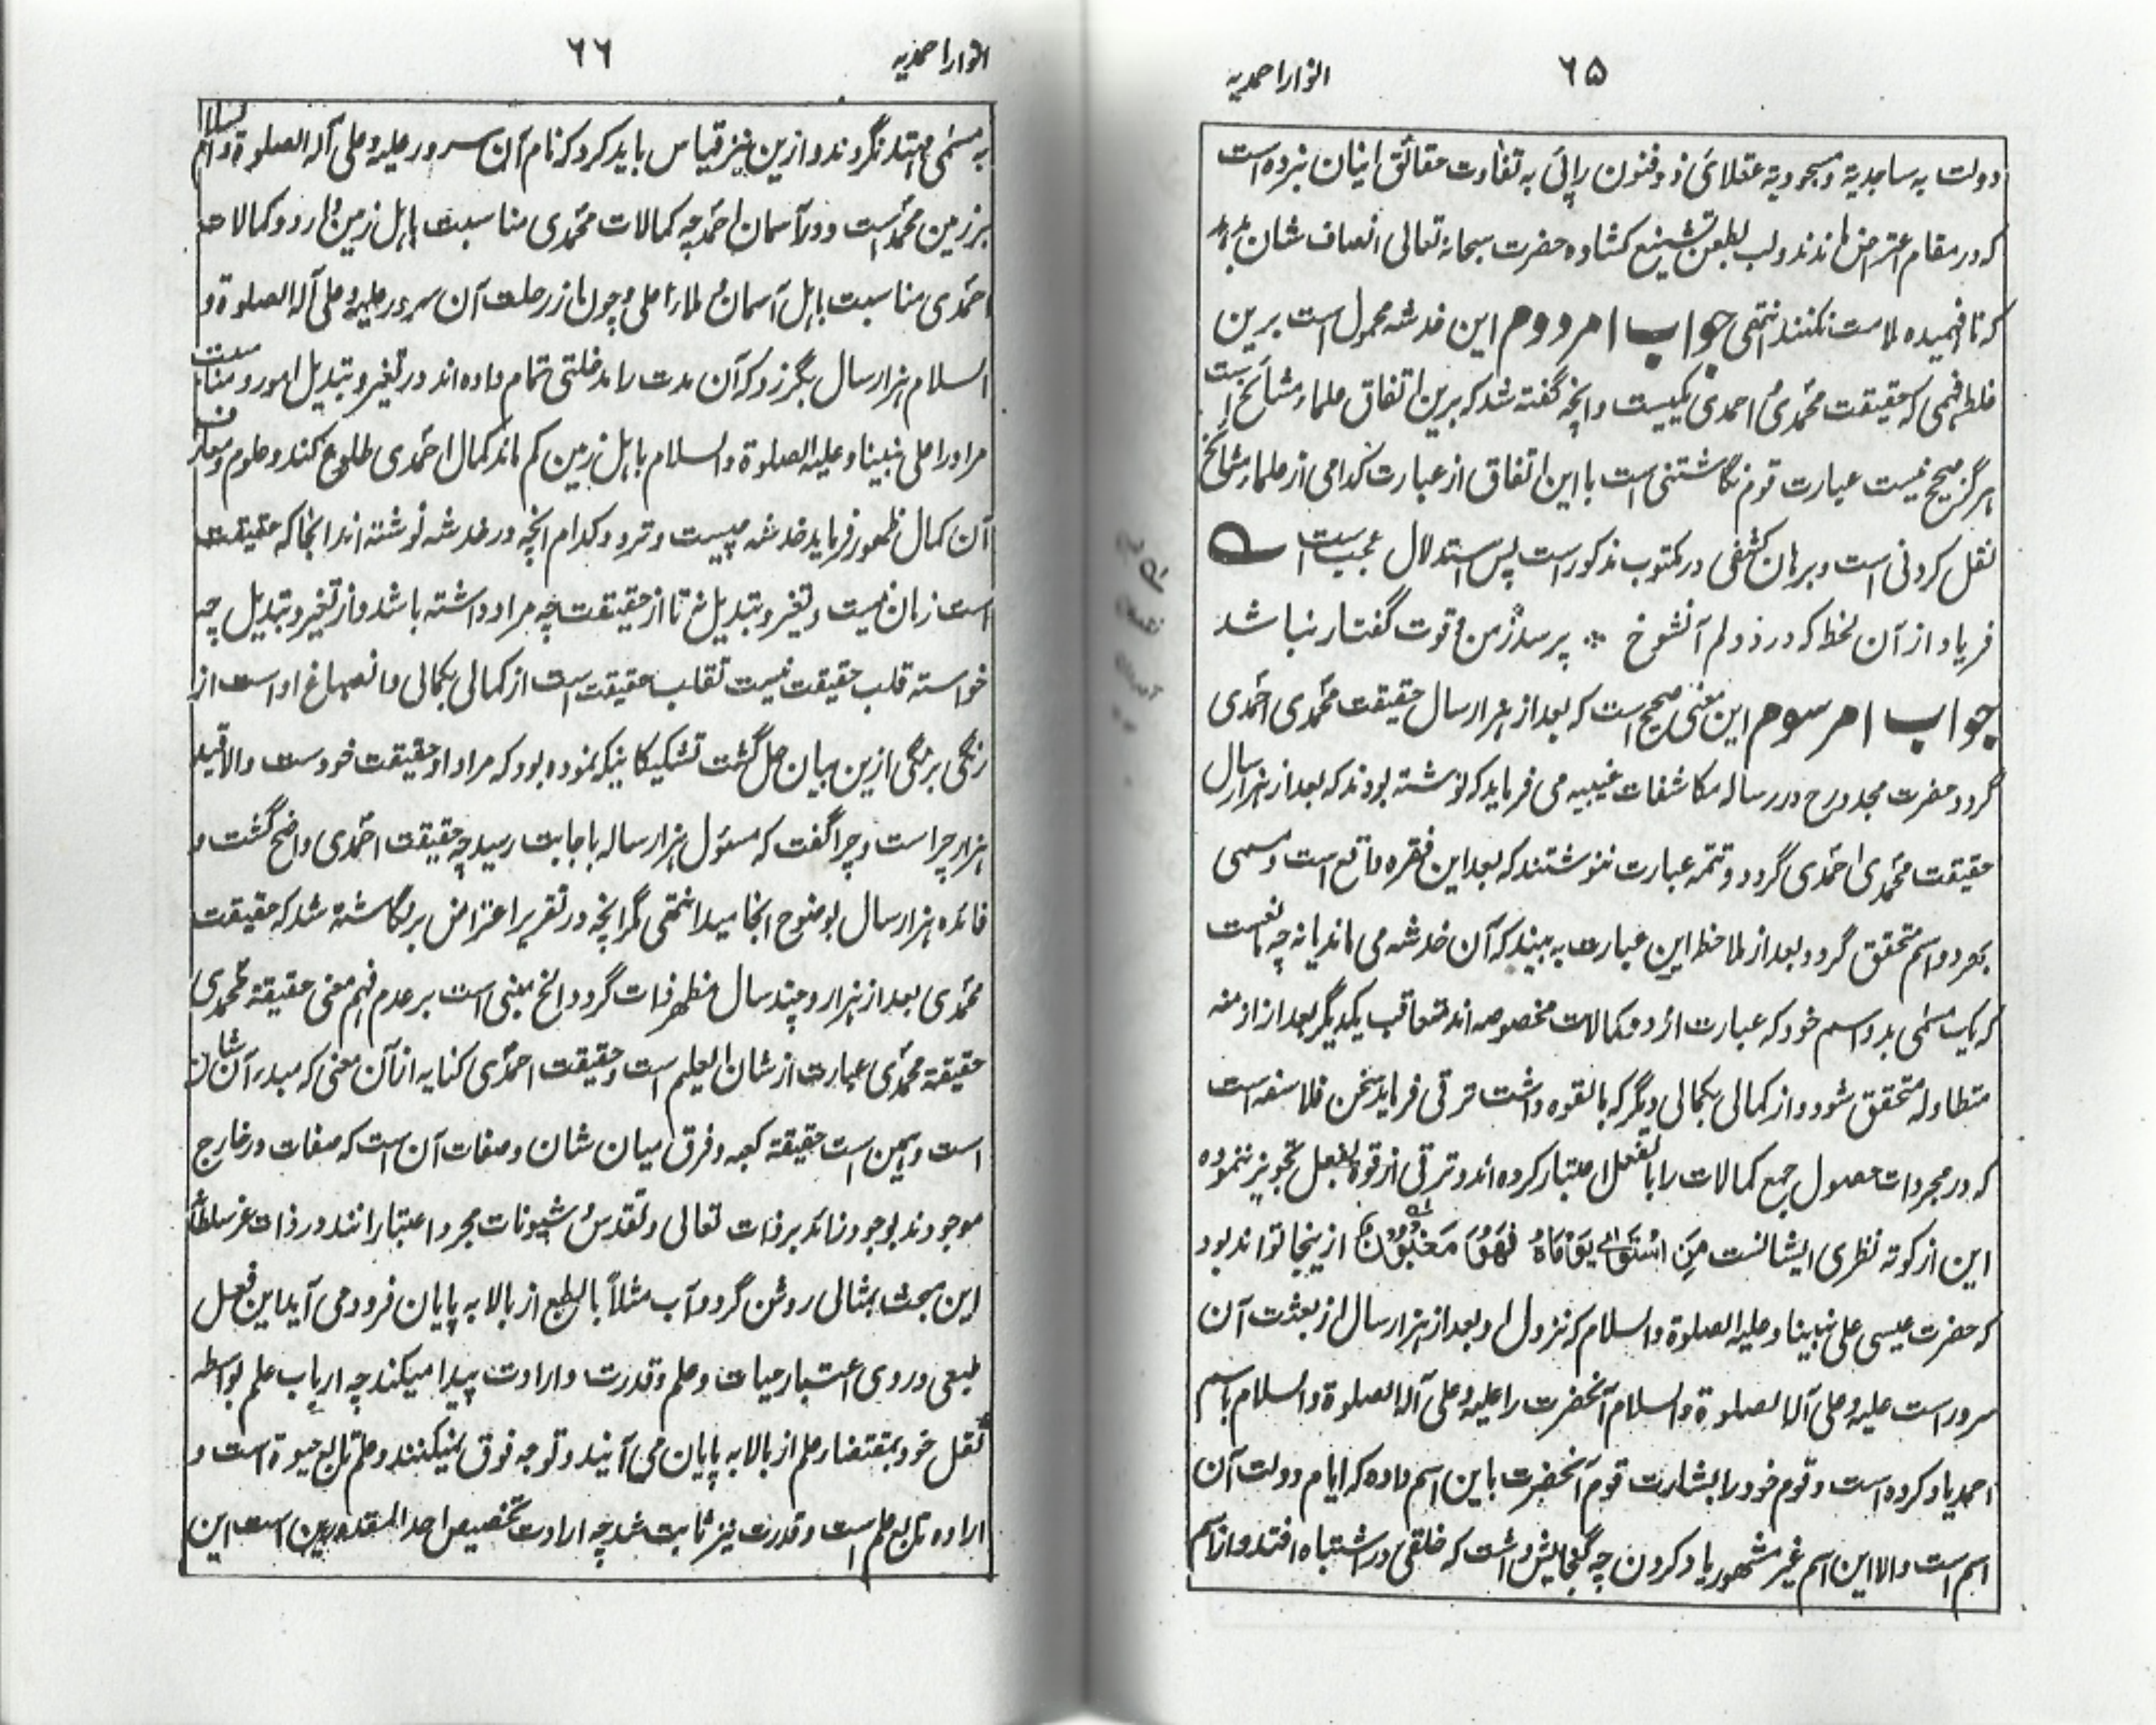 انوار احمدیه ۶۵
دولت به ساجدیة و مسجودیة عقلای ذو فنون را پی به تفاوت حقائق اینان نبرده است
که در مقام اعتراض ماندند ولب بطعن و تشنیع کشاده حضرت سبحانه تعالی انصاف شان بدهد
که نا فهمیده ملامت نکنند انتهی جواب امر دوم این خدشه محمول است برین
غلط فهمی که حقیقت محمّدی و احمدی یکیست و انچه گفته شد که برین اتفاق علماء و مشائخ است
هرگز صحیح نیست عبارت قوم نگاشتنی است با این اتفاق از عبارت کدامی از علماء و مشائخ
نقل کردنی است و برهان کشفی در مکتوب مذکور است پس استدلال عجیب است
فریاد از آن لحظ که درد دلم آنشوخ ٭ پرسد ز من و قوت گفتار نباشد
جواب امر سوم این معنی صحیح است که بعد از هزار سال حقیقت محمّدی احمّدی
گردد حضرت مجدد رح در رساله مکاشفات غیبیه می فرماید که نوشته بودند که بعد از هزار سال
حقیقت محمّدی احمّدی گردد و تتمه عبارت ننوشتند که بعد این فقره واقع است و مسمی
بهر دو اسم متحقق گردد بعد از ملاحظ این عبارت به بینند که آن خدشه می ماند یا نه چه مانعست
که یک مسمّی بدو اسم خود که عبارت از دو کمالات مخصوصه اند متعاقب یکدیگر بعد از ازمنه
متطاوله متحقق شود و از کمالی بکمالی دیگر که بالقوه داشت ترقی فرماید سخن فلاسفه است
که در مجردات حصول جمیع کمالات را بالفعل اعتبار کرده اند و ترقی از قوة بفعل تجویز ننموده
این از کوته نظری ایشانست مَنِ اسْتَوٰی یَوْمَاهُ فَهُوَ مَغْبُوْنٌ از ینجا تواند بود
که حضرت عیسی علی نبینا و علیه الصلوة والسلام که نزول او بعد از هزار سال از بعثت آن
سرور است علیه و علی آله الصلوة والسلام آنحضرت را علیه و علی آله الصلوة والسلام باسم
احمد یاد کرده است و قوم خود را بشارت قوم آنحضرت باین اسم داده که ایام دولت آن
اسم است والا این اسم غیر مشهور یاد کردن چه گنجایش داشت که خلقی در اشتباه افتد و از اسم
انوار احمدیه ۶۶
به مسمّی مهتد نگردند و ازین نیز قیاس باید کرد که نام آن سرور علیه و علی آله الصلوة والسلام
بر زمین محمّد است و در آسمان احمّد چه کمالات محمّدی مناسبت باهل زمین دارد و کمالات
احمّدی مناسبت باهل آسمان و ملاء اعلی و چون از رحلت آن سرور علیه و علی آله الصلوة و
السلام هزار سال بگزرد که آن مدت را مدخلتی تمام داده اند در تغیر و تبدیل امور و مناسبت
مر اورا علی نبینا و علیه الصلوة والسلام باهل زمین کم ماند کمال احمّدی طلوع کند و علوم و معارف
آن کمال ظهور فرماید خدشه چیست و تردد کدام انچه در خدشه نوشته اند انجا که حقیقت
است زبان نیست و تغیر و تبدیل نه تا از حقیقت چه مراد داشته باشد و از تغیر و تبدیل چه
خواسته قلب حقیقت نیست تقلب حقیقت است از کمالی بکمالی و انصباغ او است از
رنگی برنگی ازین بیان حل گشت تشکیکا نیکه نموده بود که مراد از حقیقت خود ست والا قید
هزار چرا است و چرا گفت که مسئول هزار ساله باجابت رسید چه حقیقت احمّدی واضح گشت و
فائده هزار سال بوضوح انجامید انتهی مگر انچه در تقریر اعتراض بر نگاشته شد که حقیقت
محمّدی بعد از هزار و چند سال مظهر ذات گردد الخ مبنی است بر عدم فهم معنی حقیقة محمّدی
حقیقة محمّدی عبارت از شان العلم است و حقیقت احمّدی کنایه از آن معنی که مبدء آن شان
است و همین است حقیقة کعبه و فرق میان شان و صفات آن است که صفات در خارج
موجودند بوجود زائد بر ذات تعالی و تقدس و شیونات مجرد اعتبارانند در ذات عز سلطانه
این مبحث بمثالی روشن گردد آب مثلاً بالطبع از بالا به پایان فرود می آید این فعل
طبعی در وی اعتبار حیات و علم و قدرت و ارادت پیدا میکند چه ارباب علم بواسطه
ثقل خود بمقتضاء علم از بالا به پایان می آیند و توجه فوق نمیکنند و علم تابع حیوة است و
اراده تابع علم است و قدرت نیز ثابت شد چه ارادت تخصیص احد المقدورین است این